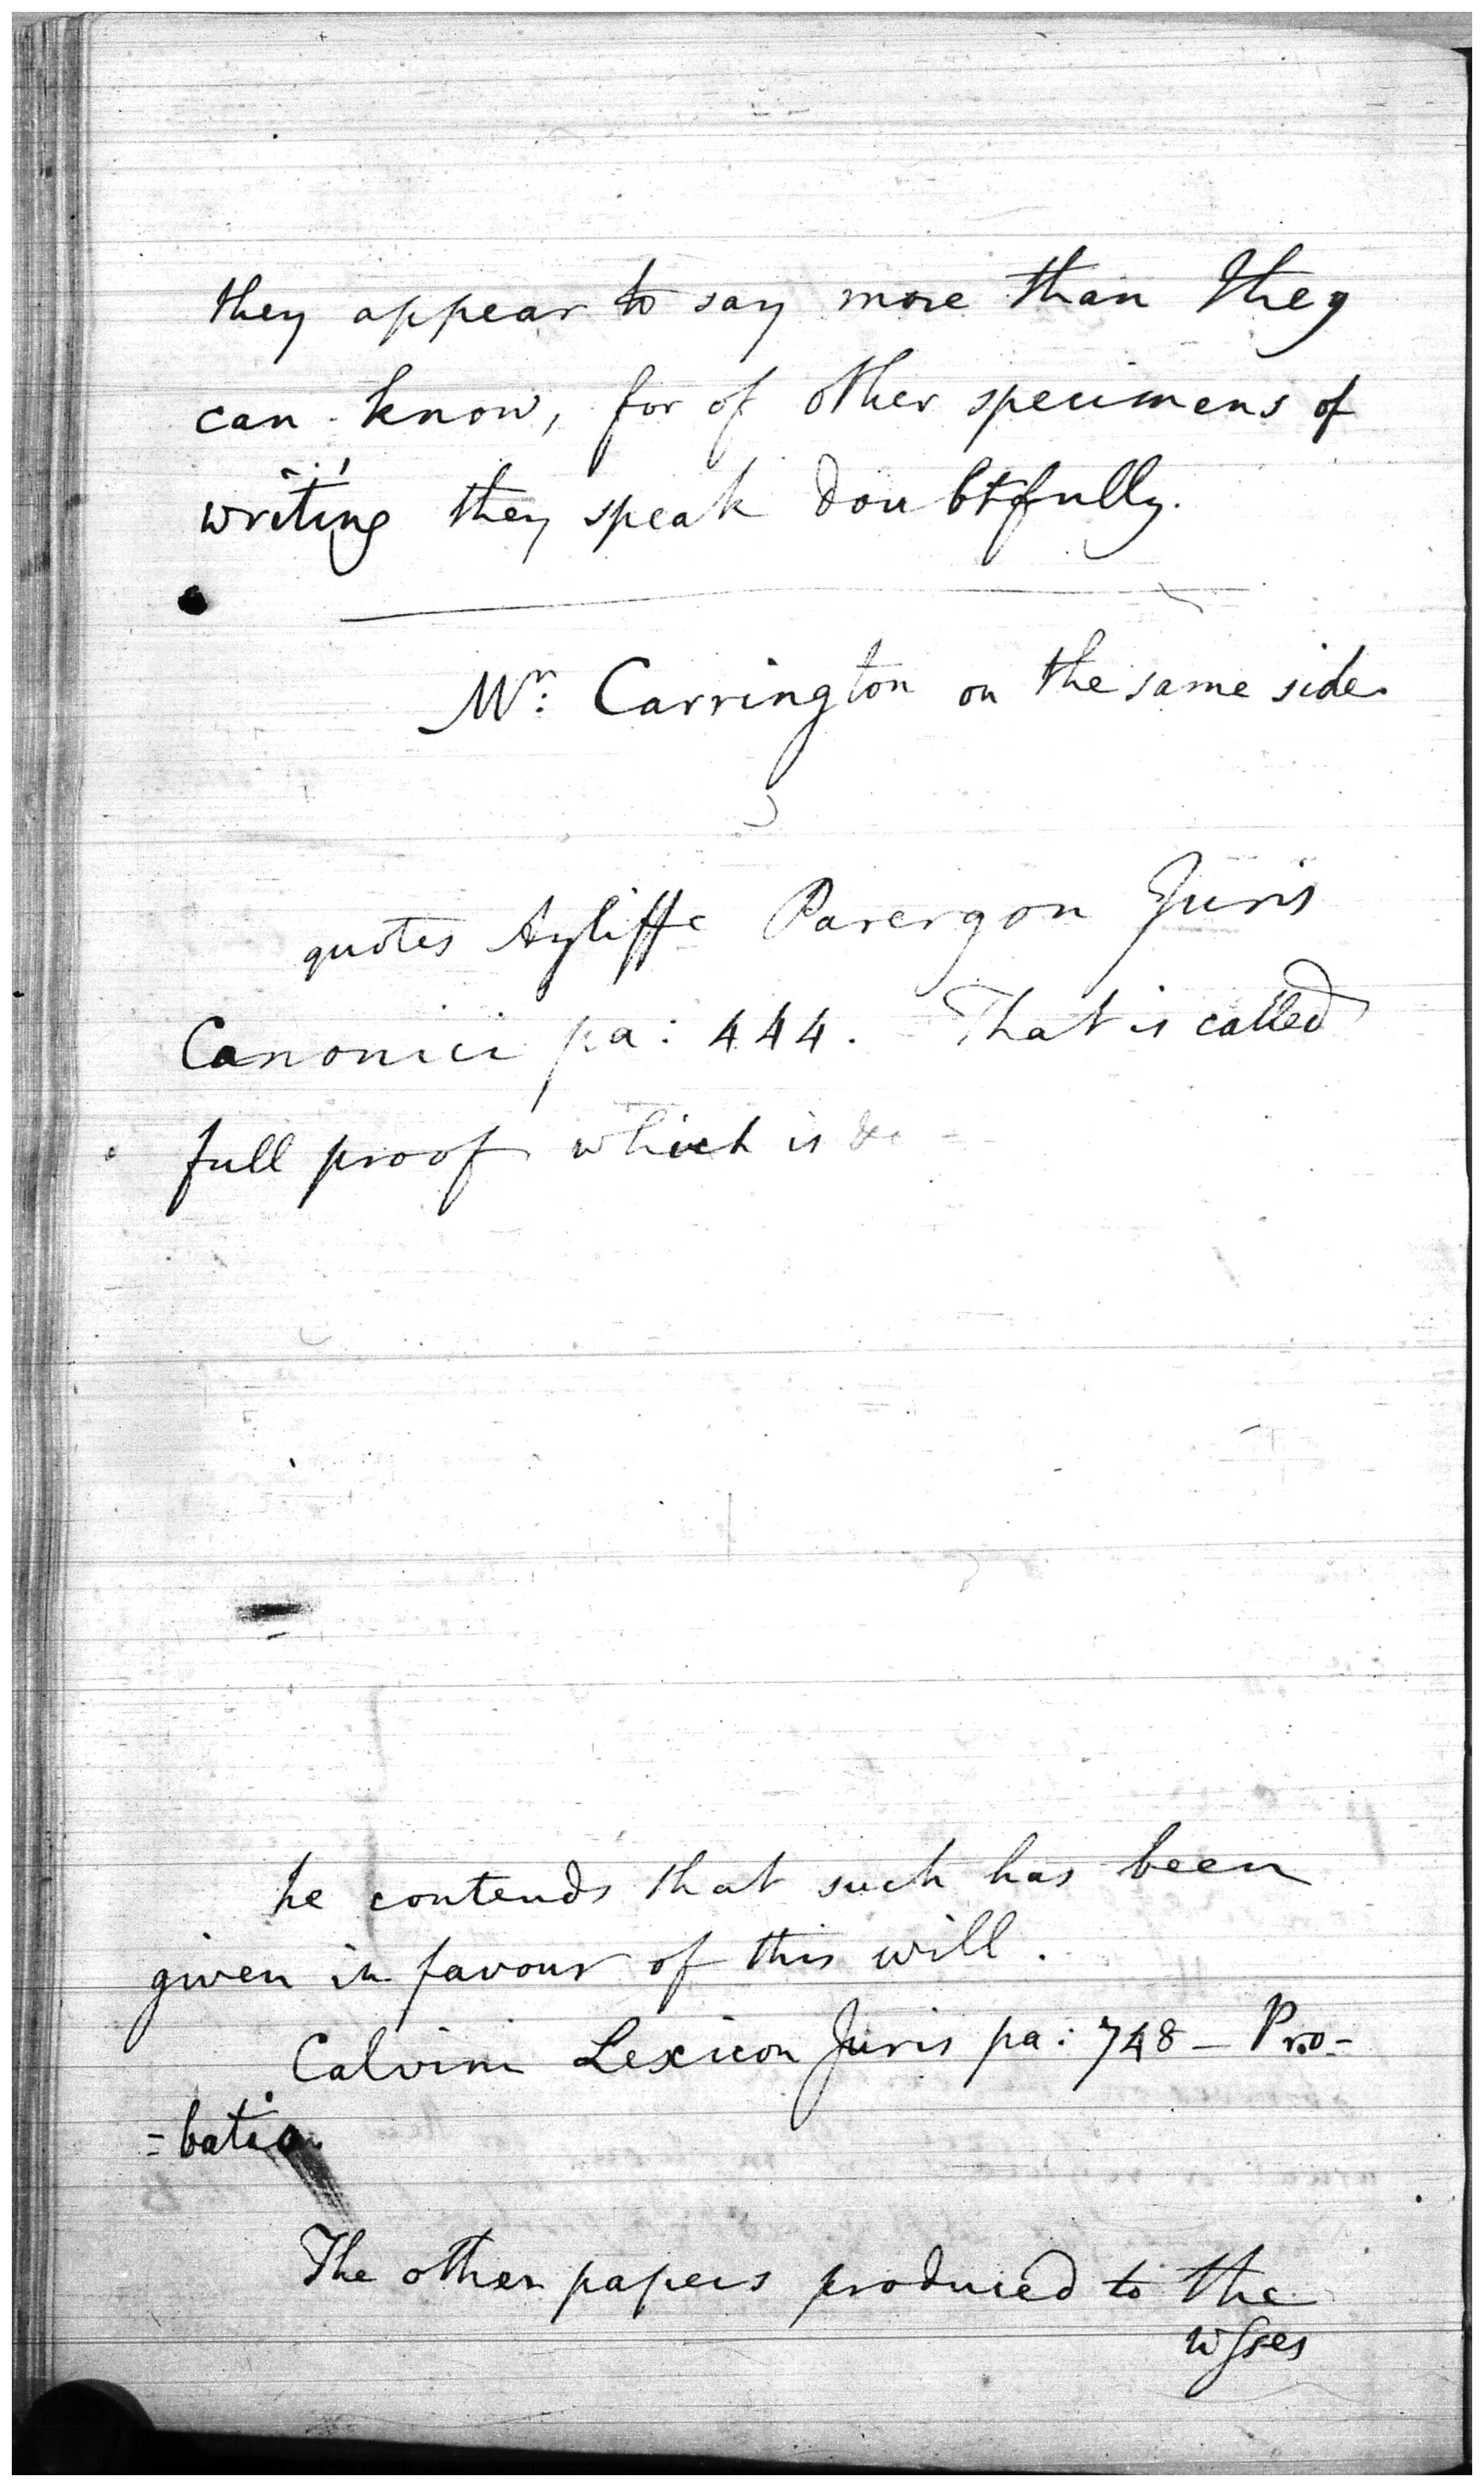 they appear to say more than they
can know, for of other specimens of
writing they speak doubtfully.
Mr: Carrington on the same side.
quotes Ayliffe Parergon Juris
Canonici pa: 444. That is called
full proof which is &c -
he contends that such has been
given in favour of this will.
Calvini Lexicon Juris pa: 748 - Pro-
=batio.
The other papers produced to the
wſses